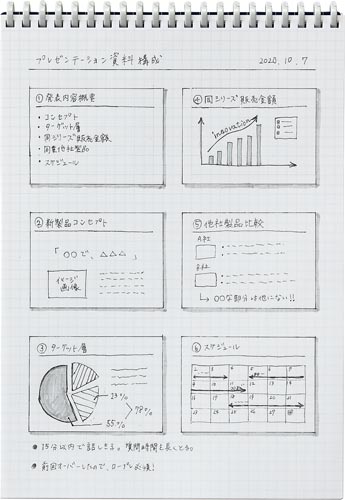 プレゼンテーション資料構成
2020.10.7
① 発表内容概要
・コンセプト
・ターゲット層
・同シリーズ販売金額
・同業他社製品
・スケジュール
④ 同シリーズ販売金額
innovation
② 新製品コンセプト
「〇〇で、△△△」
イメージ
画像
⑤ 他社製品比較
A社
B社
↳〇〇な部分は他にない!!
③ ターゲット層
23%
78%
55%
⑥ スケジュール
● 15分以内で話しきる。質問時間を長くとる。
● 前回オーバーしたので、リハーサル必須!